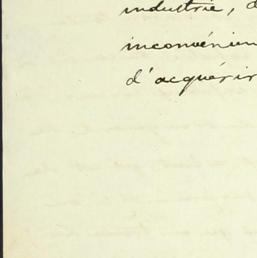 industrie, d
inconvénien
d'acquérir